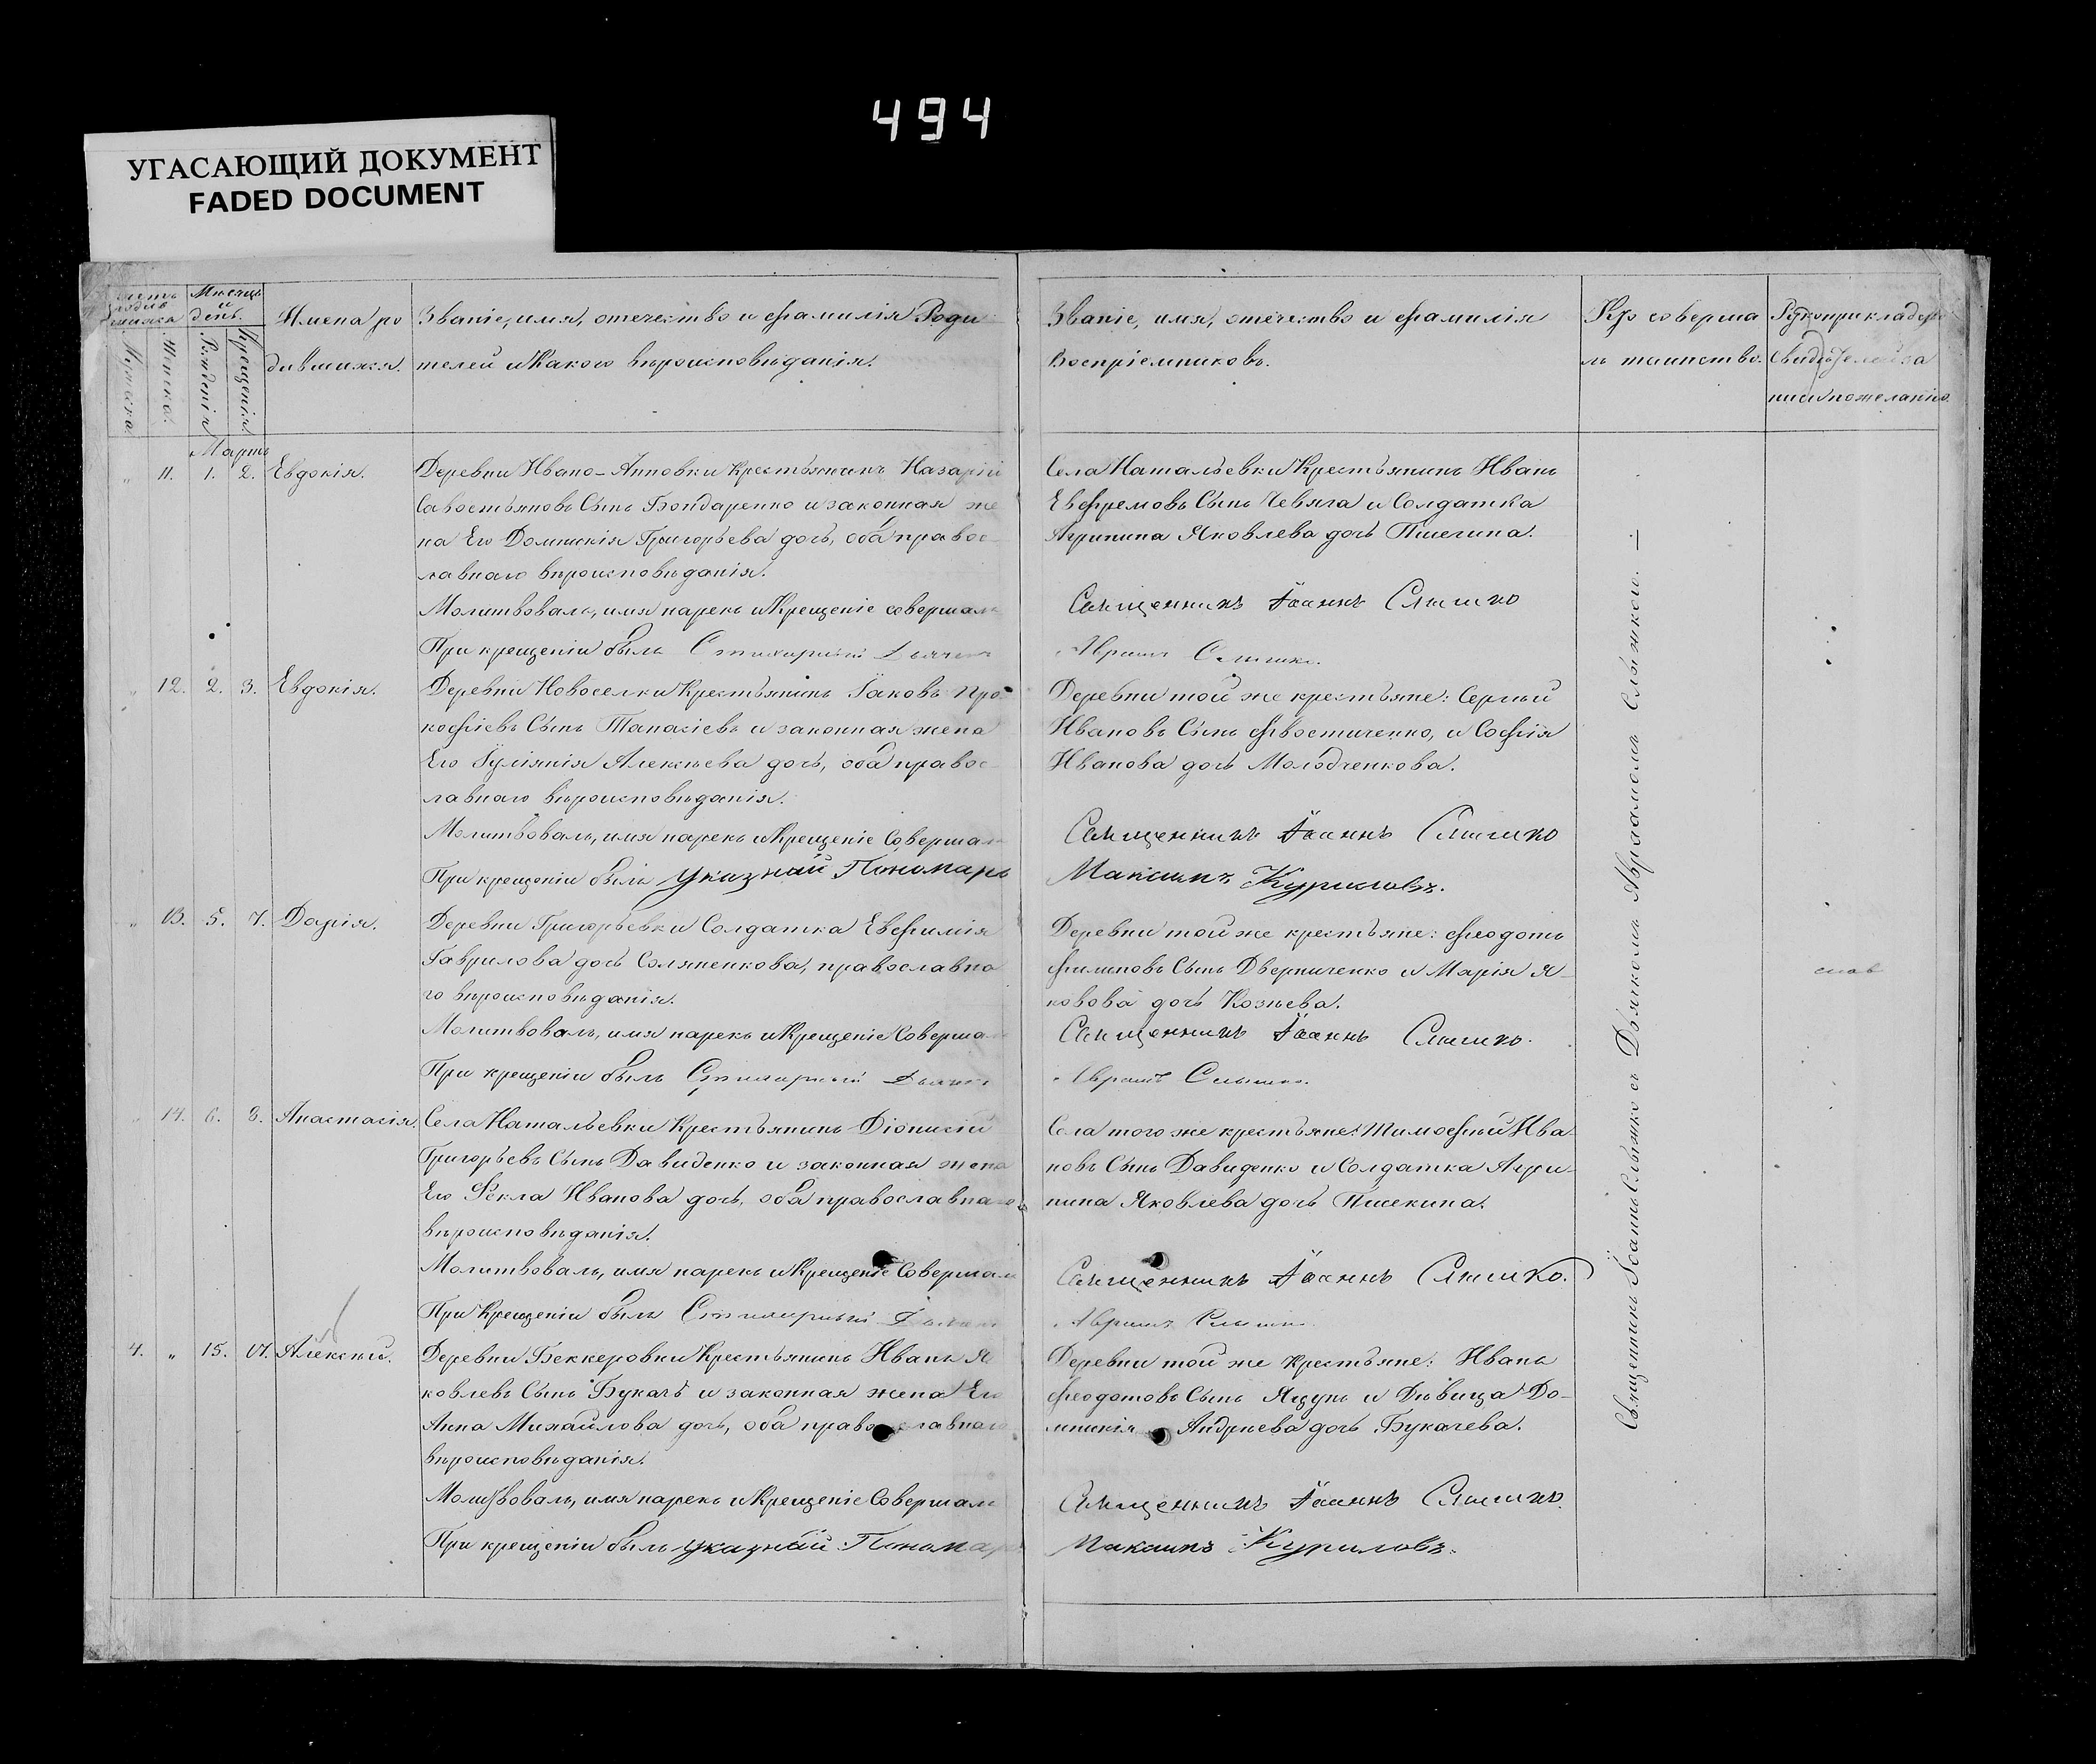 494
УГАСАЮЩИЙ ДОКУМЕНТ
FADED DOCUMENT
Мѣсяцъ
и
день.
Мужеска.
Женска.
Рожденія
Крещенія
Имена ро
дившихся.
Званіе, имя, отечество и фамилія Роди
телей и какого вѣроисповѣданія.
Званіе, имя, отечество и фамилія
Воспріемниковъ.
Кто соверша
лъ таинство.
Рукоприкладство
свидѣтелей за
писи по желанію.
Мартъ
„ 11. 1. 2. Евдокія.
Деревни Ивано-Анновки Крестьянинъ Назарій
Савостьяновъ Сынъ Бондаренко и законная же
на Его Домникія Григорьева дочь, оба правос
лавнаго вѣроисповѣданія.
Молитвовалъ, имя нарекъ и Крещеніе совершалъ
При крещеніи былъ Стихарный Дьячекъ
Села Натальевки Крестьянинъ Иванъ
Евфремовъ Сынъ Чевяга и Солдатка
Агрипина Яковлева дочь
Священникъ Іоаннъ Слышко
Слышко.
„ 12. 2. 3. Евдокія.
Деревни Новоселки Крестьянинъ Іаковъ Про-
кофіевъ Сынъ Танасіевъ и законная жена
Его Іуліянія Алексѣева дочь, оба правос
лавнаго вѣроисповѣданія.
Молитвовалъ, имя нарекъ и Крещеніе Совершалъ
При крещеніи былъ указный Пономарь
Деревни той же крестьяне: Сергѣй
Ивановъ Сынъ Фвостиченко, и Софія
Иванова дочь Молодченкова.
Священникъ Іоаннъ Слышко
Максимъ Куриловъ.
„ 13. 5. 7. Дарія.
Деревни Григорьевки Солдатка Евфимія
Гаврилова дочь Соляненкова, православна
го вѣроисповѣданія.
Молитвовалъ, имя нарекъ и Крещеніе Совершалъ
При крещеніи былъ Стихарный Дьячекъ
Деревни той же крестьяне: Феодотъ
Филиповъ Сынъ Дверниченко и Марія Я-
ковова дочь Козяева.
Священникъ Іоаннъ Слышко.
Слышко.
„ 14. 6. 8. Анастасія.
Села Натальевки Крестьянинъ Діонисій
Григорьевъ Сынъ Давиденко и законная жена
Его Фекла Иванова дочь, оба православнаго
вѣроисповѣданія.
Молитвовалъ, имя нарекъ и Крещеніе Совершалъ
При Крещеніи былъ Стихарный Дьячекъ
Села того же крестьяне: Тимофѣй Ива
новъ Сынъ Давиденко и Солдатка Агри-
пина Яковлева дочь Пшекина.
Священникъ Іоаннъ Слышко.
Слышко
4. „ 15. 17. Алексѣй.
Деревни Беккеровки Крестьянинъ Иванъ Я
ковлевъ Сынъ Букачъ и законная жена Его
Анна Михайлова дочь, оба православнаго
вѣроисповѣданія.
Молитвовалъ, имя нарекъ и Крещеніе Совершалъ
При крещеніи былъ указный Пономарь
Деревни той же крестьяне: Иванъ
Феодотовъ Сынъ Ящунъ и Дѣвица До-
мникія Андреева дочь Букачева.
Священникъ Іоаннъ Слышко.
Максимъ Куриловъ.
Священникъ Іоаннъ Слышко съ Дьячкомъ Авраамомъ Слышкою. —